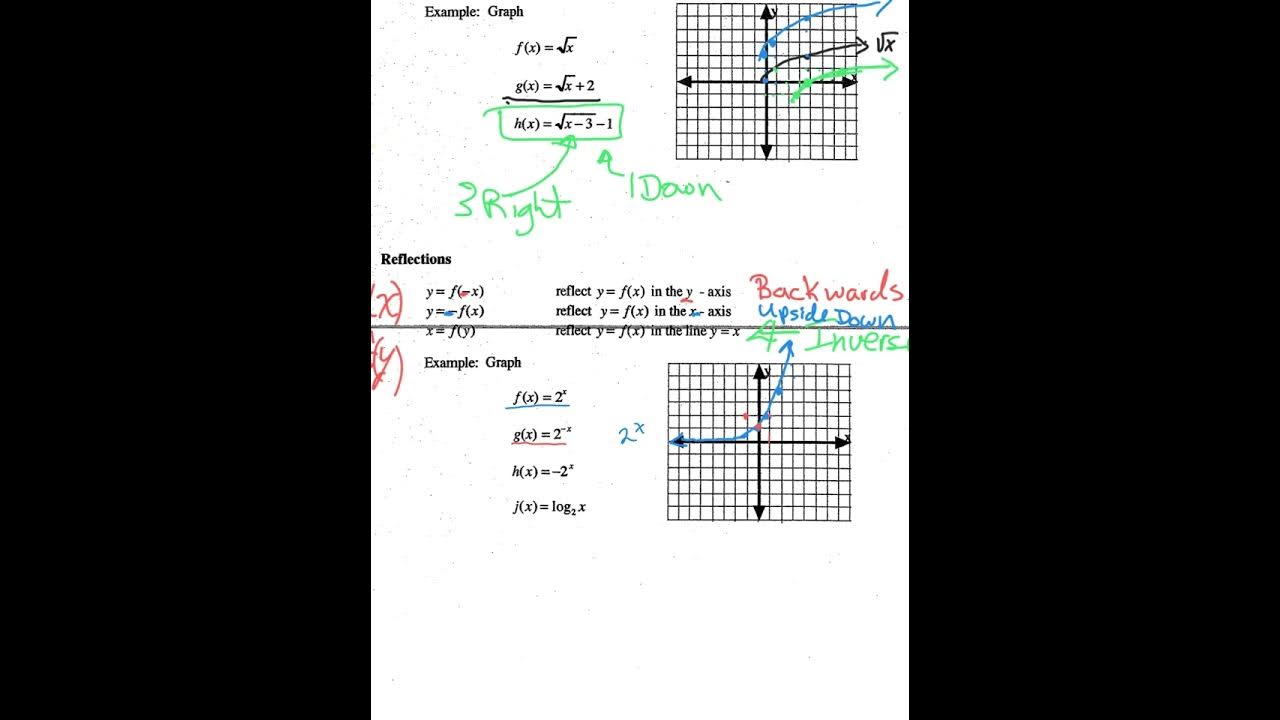 Example: Graph
y
f(x) = √x
√x
g(x) = √x + 2
x
h(x) = √x − 3 − 1
3 Right
1 Down
Reflections
y = f(−x) reflect y = f(x) in the y - axis Backwards
x)
y = −f(x) reflect y = f(x) in the x - axis Upside Down
x = f(y) reflect y = f(x) in the line y = x Invers
Example: Graph
y
f(x) = 2ˣ
g(x) = 2⁻ˣ 2ˣ
x
h(x) = −2ˣ
j(x) = log₂ x